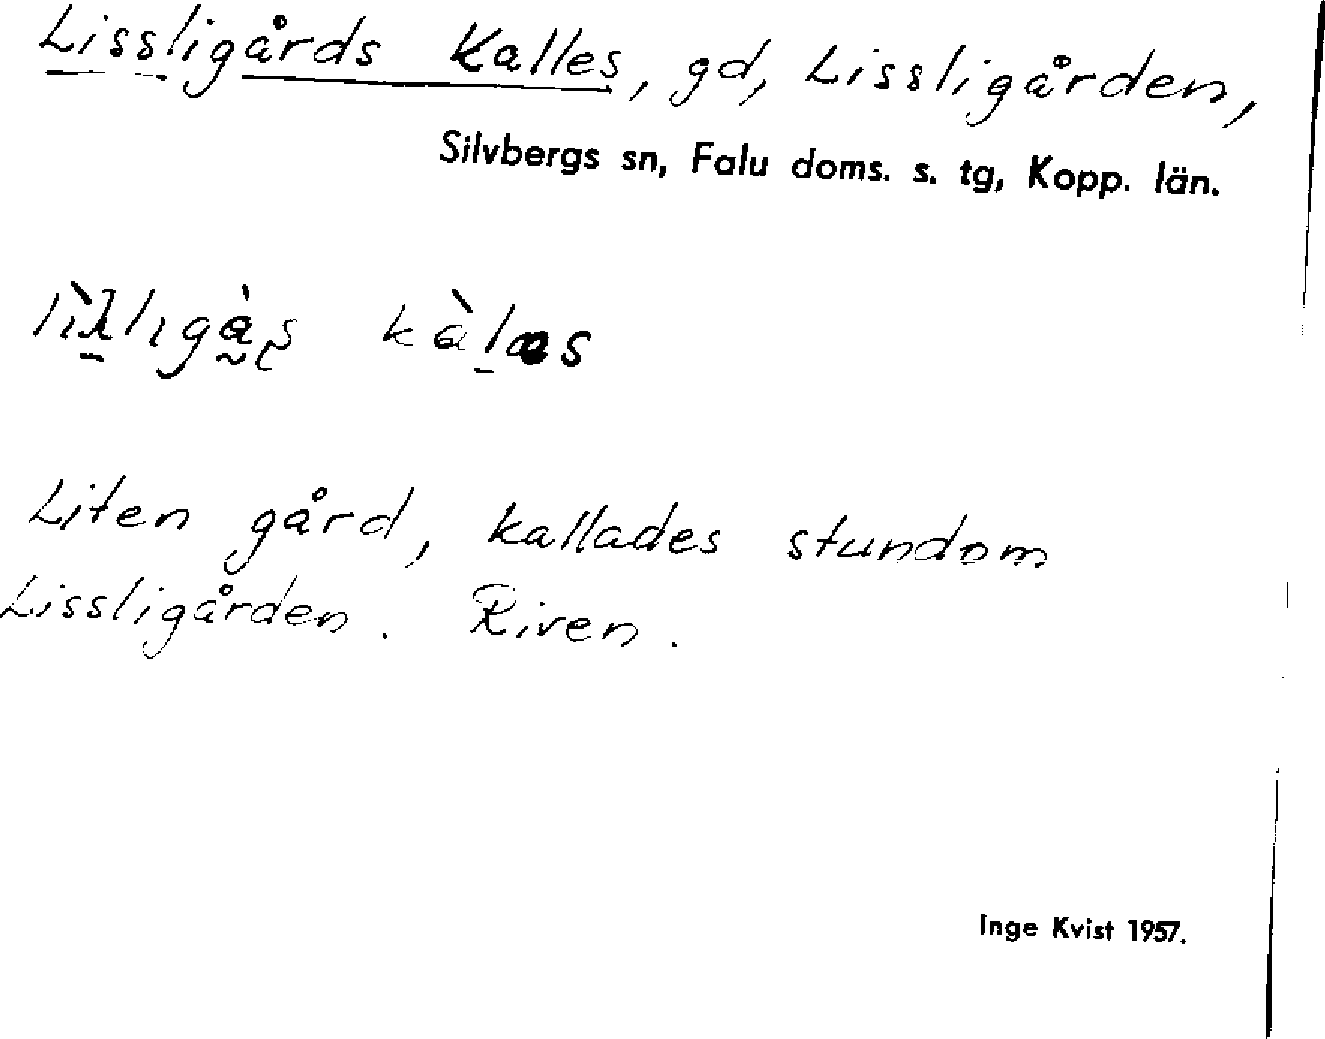 Lissligårds Kalles, gd, Lissligården,
Silvbergs sn, Falu doms. s. tg, Kopp. län.
Liten gård, kallades stundom
Lissligården. Riven.
Inge Kvist 1957.